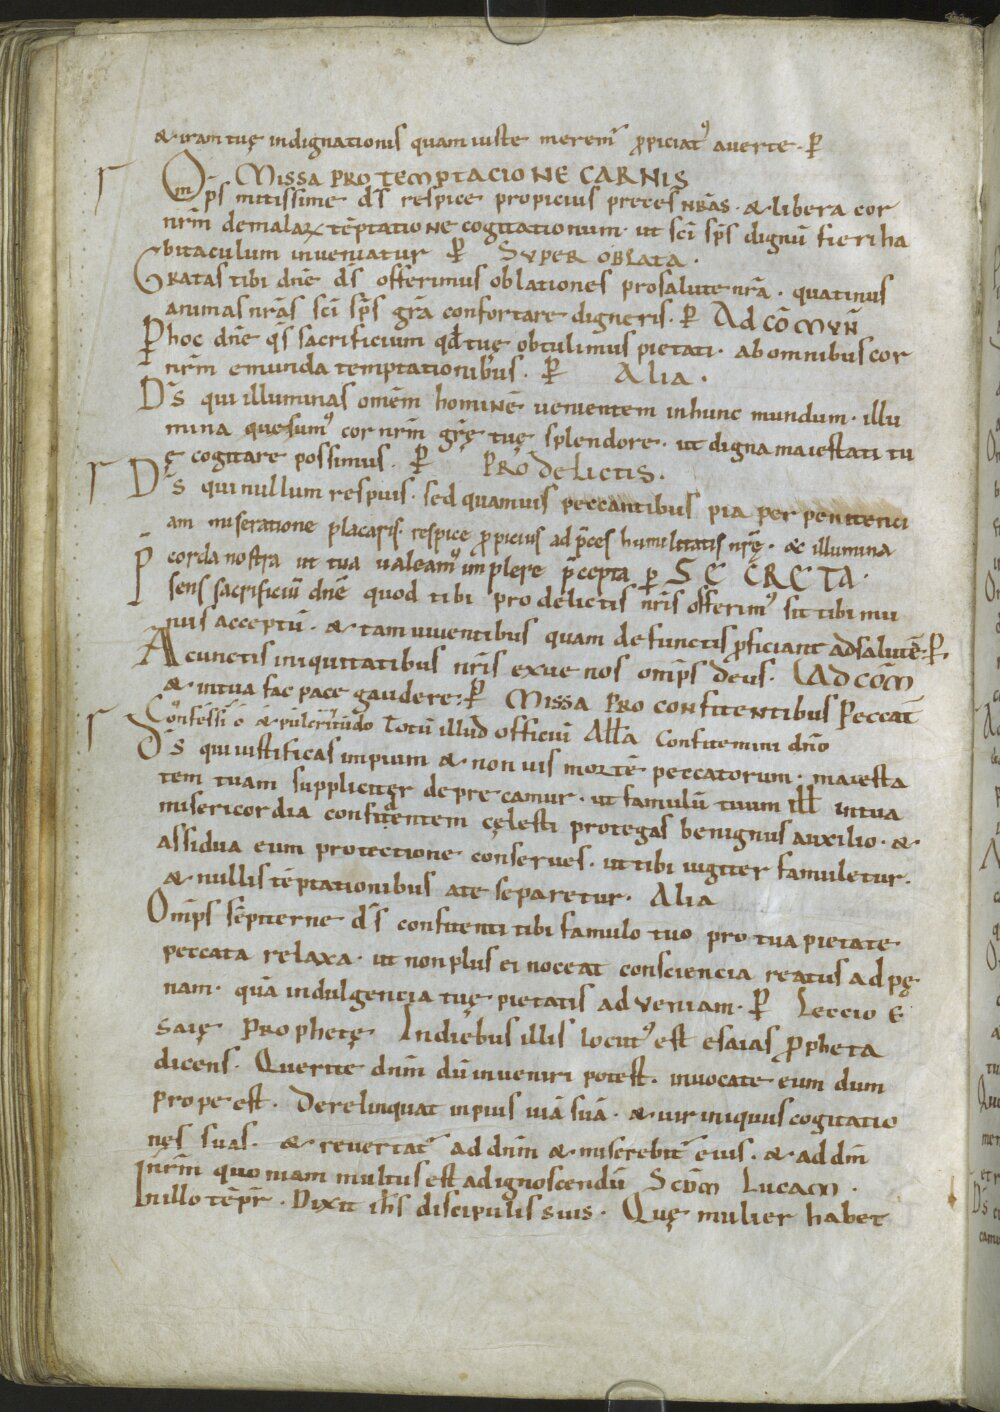 & iram tuę indignationis quam iuste meremr̄ ꝓpiciatꝰ auerte. ꝑ
MISSA PRO TEMPTACIONE CARNIS
Omp̄s mitissime d̄s respice propicius preces nr̄as. & libera cor
nr̄m de malaꝝ tēptatione cogitationum. ut sc̄i sp̄s dignū fieri ha
bitaculum inueniatur ꝑ SVPER OBLATA.
Gratas tibi dn̄e d̄s offerimus oblationes pro salute nr̄a. quatinus
animas nr̄as sc̄i sp̄s gr̄a confortare digneris. ꝑ Ad cōmvn̄
P hoc dn̄e q̄s sacrificium qd̄ tuę obtulimus pietati. ab omnibus cor
nr̄m emunda temptationibus. ꝑ Alia.
D̄s qui illuminas omēm hominē uenientem in hunc mundum. illu
mina quesumꝰ cor nr̄m gr̄ę tuę splendore. ut digna maiestati tu
ę cogitare possimus. ꝑ PRO DeLICTIS.
D̄s qui nullum respuis. sed quamuis peccantibus pia per penitenci
am miseratione placaris. respice ꝓpicius ad p̄ces humilitatis nr̄ę. & illumina
corda nostra ut tua ualeamꝰ implere p̄cepta ꝑ SECRETA.
P̄sens sacrificiū dn̄e quod tibi pro delictis nr̄is offerimꝰ sit tibi mu
nus acceptū. & tam uiuentibus quam defunctis ꝓficiant ad salutē. ꝑ.
A cunctis iniquitatibus nr̄is exue nos omp̄s deus. Ad com̄
& in tua fac pace gaudere. ꝑ Missa pro confitentibus peccat̄
Confessio & pulcritudo Totū illud officiū All̄a Confitemini dn̄o
D̄s qui iustificas impium & non uis mortē peccatorum. maiesta
tem tuam suppliciter deprecamur. ut famulū tuum ill̄ in tua
misericordia confidentem cęlesti protegas benignus auxilio. &
assidua eum protectione conserues. ut tibi iugiter famuletur.
& nullis tēptationibus a te separetur. Alia
Omp̄s sēpiterne d̄s confitenti tibi famulo tuo pro tua pietate
peccata relaxa. ut non plus ei noceat consciencia reatus ad pę
nam. quā indulgencia tuę pietatis ad veniam. ꝑ Leccio E
saię Prophetę. In diebus illis locutꝰ est esaias ꝓpheta
dicens. Querite dn̄m dū inueniri potest. inuocate eum dum
prope est. Derelinquat inpius uiā suā. & uir iniquus cogitatio
nes suas. & reuertatr̄ ad dn̄m & miserebitr̄ eius. & ad dm̄
nr̄m quoniam multus est ad ignoscendū Scd̄m Lucam.
In illo tēpr̄. Dixit ih̄s discipulis suis. Quę mulier habet